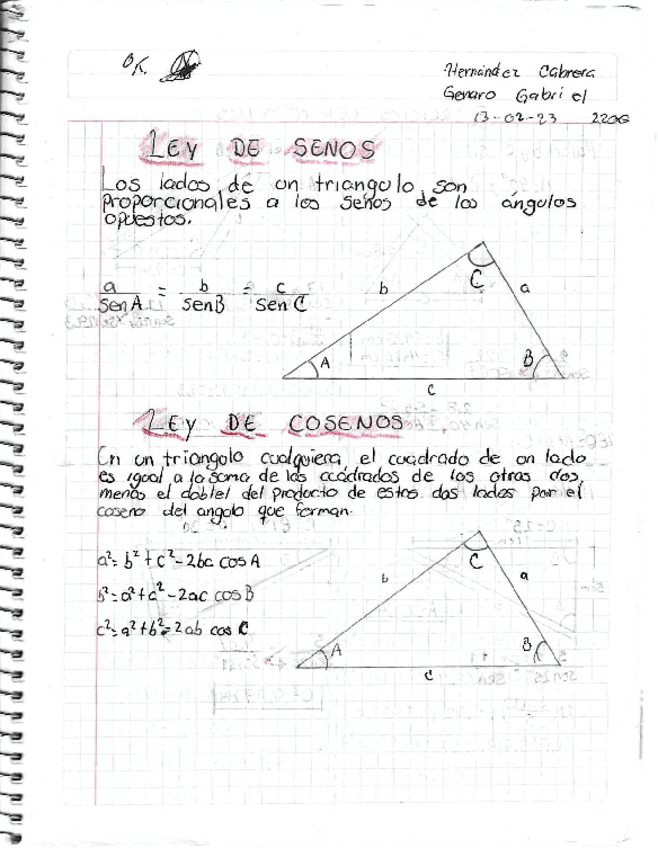 OK.
Hernández Cabrera
Genaro Gabriel
13-02-23 220G
LEY DE SENOS
Los lados de un triangulo son
proporcionales a los senos de los ángulos
opuestos.
a/senA = b/senB = c/senC
C
b
a
A
B
c
LEY DE COSENOS
En un triangulo cualquiera, el cuadrado de un lado
es igual a la suma de los cuadrados de los otros dos,
menos el doblel del producto de estos dos lados por el
coseno del angulo que forman.
a²=b²+c²-2bc cosA
b²=a²+c²-2ac cosB
c²=a²+b²-2ab cos C
C
b
a
A
B
c